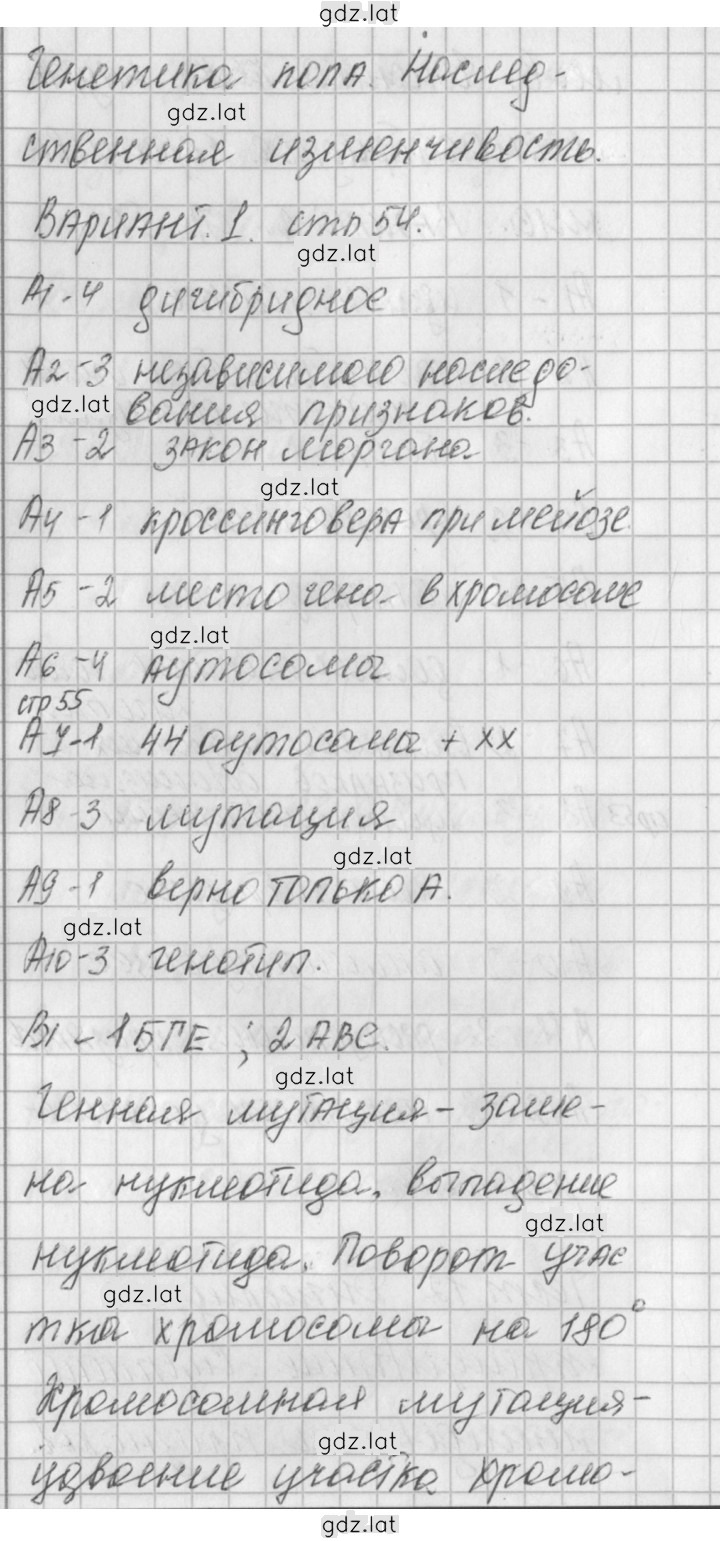 gdz.lat
Генетика пола. Наслед-
gdz.lat
ственная изменчивость.
Вариант. 1. стр 54.
gdz.lat
А1-4 дигибридное
А2-3 независимого наследо-
gdz.lat вания признаков.
А3-2 закон Моргана
gdz.lat
А4-1 кроссинговера при мейозе
А5-2 место гена в хромосоме
gdz.lat
А6-4 аутосомы
стр 55
А7-1 44 аутосомы + ХХ
А8-3 мутация
gdz.lat
А9-1 верно только А.
gdz.lat
А10-3 генотип.
В1-1БГЕ; 2АВС.
gdz.lat
Генная мутация- заме-
на нуклеотида. выпадение
gdz.lat
нуклеотида. Поворот учас
gdz.lat
тка хромосомы на 180°
Хромосомная мутация-
gdz.lat
удвоение участка хромо-
gdz.lat